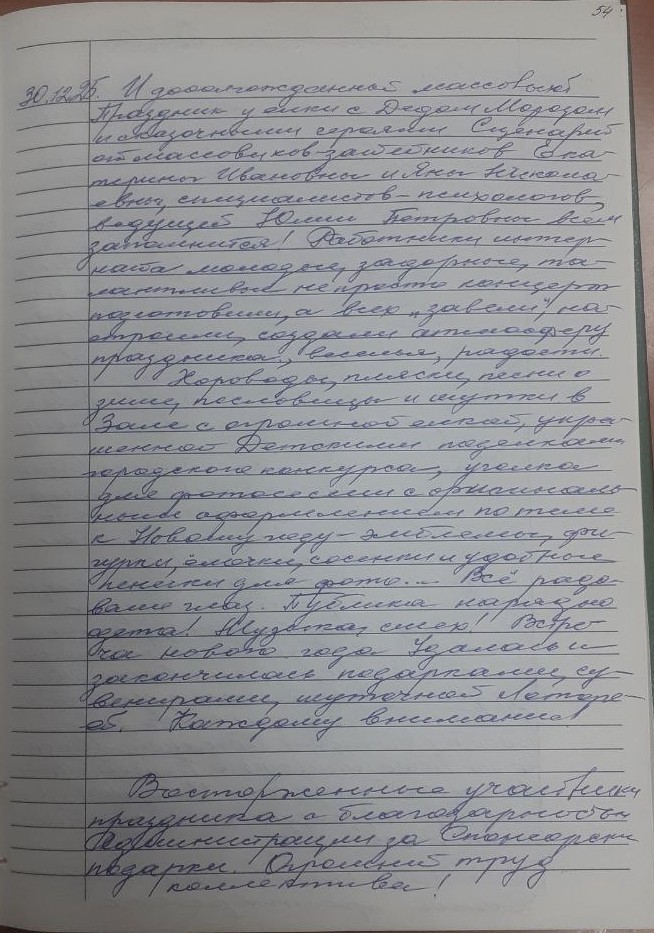 54
30.12.25. И дооолгожданный массовый
Праздник у елки с Дедом Морозом
и сказочными героями Сценарий
от массовиков-затейников Ека-
терины Ивановны и Яны Никола-
евны, специалистов-психологов,
ведущей Юлии Петровны всем
запомнится! Работники интер-
ната молодые, задорные, та-
лантливые не просто концерт
подготовили, а всех „завели", на-
строили, создали атмосферу
праздника, веселья, радости.
Хороводы, пляски, песни о
зиме, пословицы и шутки в
Зале с огромной елкой, укра-
шенной Детскими поделками
городского конкурса, уголка
для фотосессии с оригиналь-
ным оформлением по теме
к Новому году - эмблемы, фи-
гурки, ёлочки, сосенки и удобные
пенёчки для фото... Всё радо-
вало глаз. Публика нарядно
одета! Музыка, смех! Встре-
ча нового года Удалась и
закончилась подарками, су-
венирами, шуточной Лотере-
ей. Каждому внимание!
Восторженные участники
праздника с благодарностью
Администрации за Спонсорские
подарки. Огромный труд
коллектива!